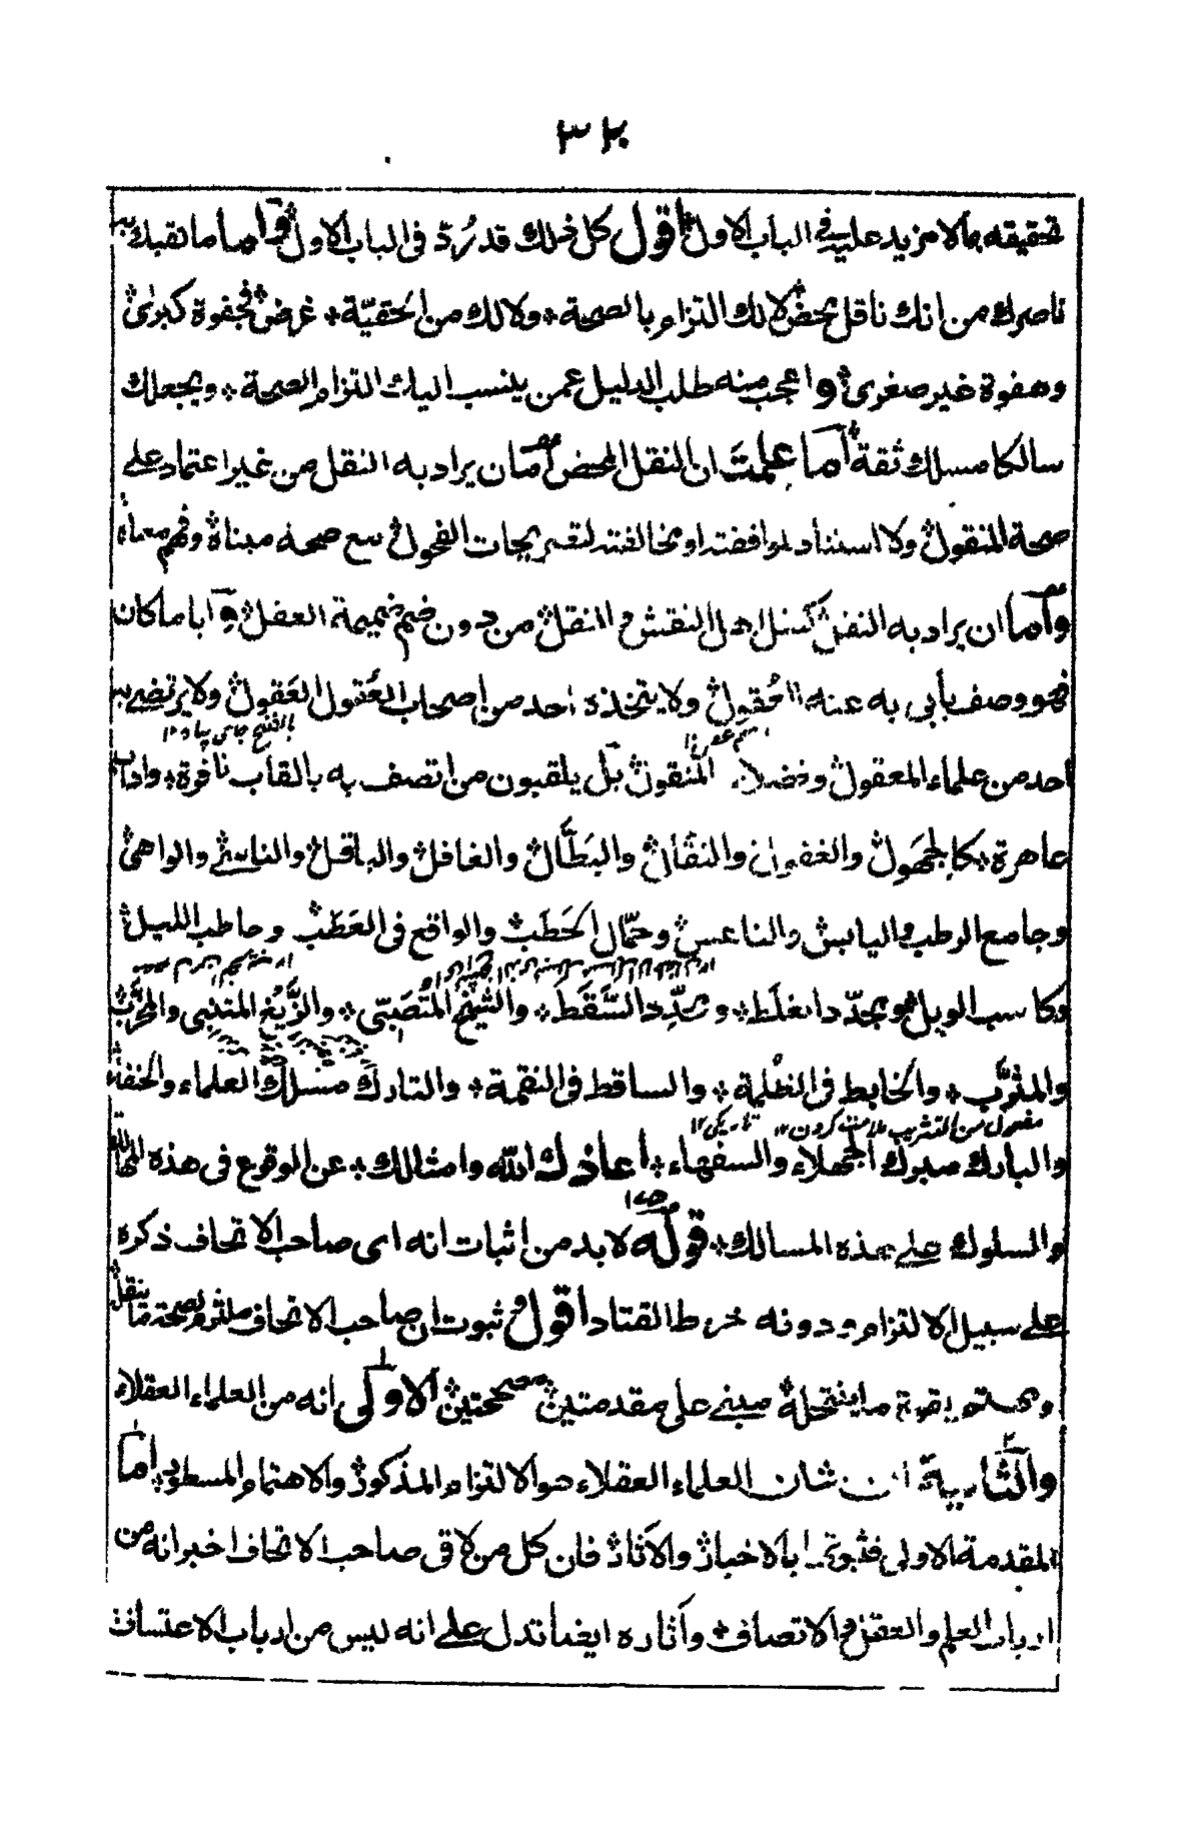 ٣٢٠
تحقيقه بمالا مزيد عليه فى الباب الاول اقول كل ذلك قد رُدّ فى الباب الاول واما ما لقبك به
ناصرك من انك ناقل محض لا لك التزام بالصحة ولا لك من الحقيّة غرض فجفوة كبرى
وهفوة غير صغرى واعجب منه طلب الدليل عمن ينسب اليك التزام الصحة ويجعلك
سالكا مسلك ثقة أما علمت ان النقل المحض اما ان يراد به النقل من غير اعتماد على
صحة المنقول ولا استناد لموافقته او مخالفته لتصريحات الفحول مع صحة مبناه وفهم معناه
وأما ان يراد به النقل كنقل اهل النقش والنقل من دون ضم ضميمة العقل وأيا ما كان
فهو وصف يأبى به عنه الحُقول ولا يتخذه احد من اصحاب العَقول العَقول ولا يرتضى به
بالفتح جاى پناه ١٢
احد من علماء المعقول وفضلاء المنقول بل يلقبون من اتصف به بالقاب نافرة واداب
عاهرة كالجَهول والغفول والنقّال والبَطّال والغافل والباقل والناسى والواهى
وجامع الرطب واليابس والناعس وحمّال الحَطَب والواقع فى العَطَب وحاطب الليل
وكاسب الويل ومجدّد الغلَط ومجدِّد السَّقَط والشيخ المُتَصَبّى والزَّيْغ المتنبى والمخرَّب
والمثرَّب والخابط فى الظلمة والساقط فى النقمة والتارك مسلك العلماء والحنفاء
مفعول من التثريب ملامت كردن ١٢ تاريكى ١٢
والبارك مبرك الجهلاء والسفهاء اعاذك الله وامثالك عن الوقوع فى هذه المهالك
والسلوك على هذه المسالك قوله لا بد من اثبات انه اى صاحب الاتحاف ذكره
على سبيل الالتزام ودونه خرط القتاد اقول ثبوت ان صاحب الاتحاف ملتزم لصحة ما ينقله
ومهتم بقوة ما ينتحله مبنى على مقدمتين صحيحتين الاولى انه من العلماء العقلاء
والثانية ان شان العلماء العقلاء هو الالتزام المذكور والاهتمام المسطور اما
المقدمة الاولى فثبوتها بالاخبار والآثار فان كل من لاقى صاحب الاتحاف اخبر انه من
ارباب العلم والعقل والاتصاف وآثاره ايضا تدل على انه ليس من ارباب الاعتساف